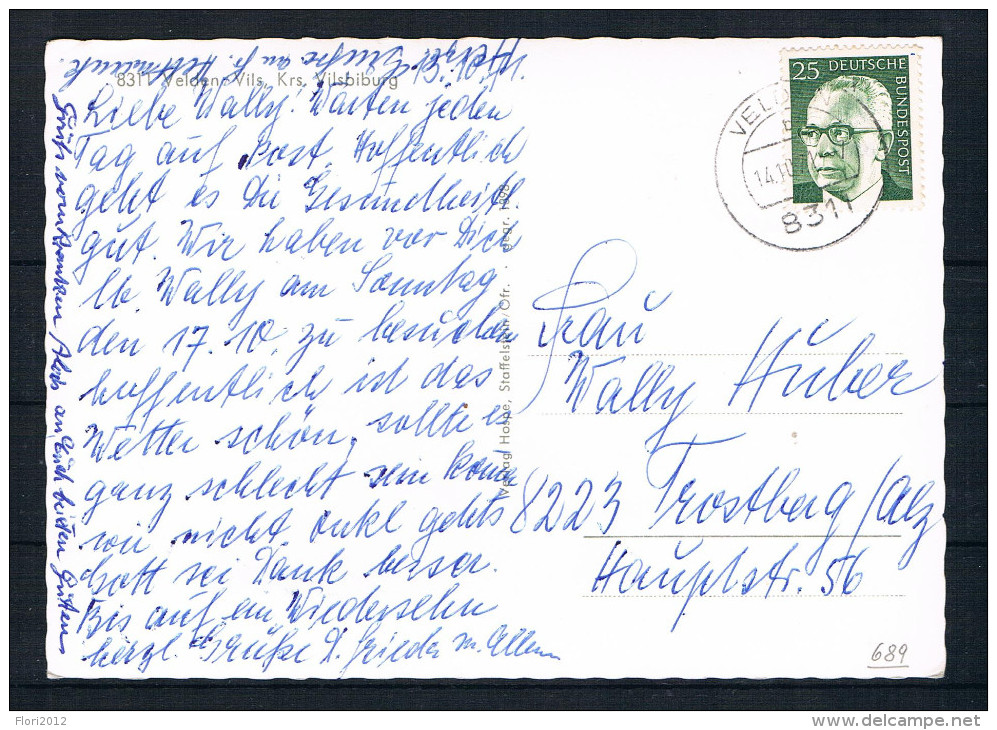 8311 Velden-Vils, Krs. Vilsbiburg
13.10.71.
Liebe Wally! Warten jeden
Tag auf Post. Hoffentlich
geht es Dir Gesundheitl.
gut. Wir haben vor Dich
lb Wally am Sonntag
den 17.10. zu besuchen
hoffentlich ist das
Wetter schön, sollte es
ganz schlecht sein komm
wir nicht. Onkl gehts
Gott sei Dank besser.
Bis auf ein Wiedersehn
herzl. Grüße D. Frieda m. Allen
an Euch
Verlag Hospe, Staffelstein/Ofr. · gegr. 1898
25 DEUTSCHE
BUNDESPOST
VELDEN
14.10.
8311
Frau
Wally Huber
8223 Trostberg/Alz
Hauptstr. 56
689
Flori2012
www.delcampe.net